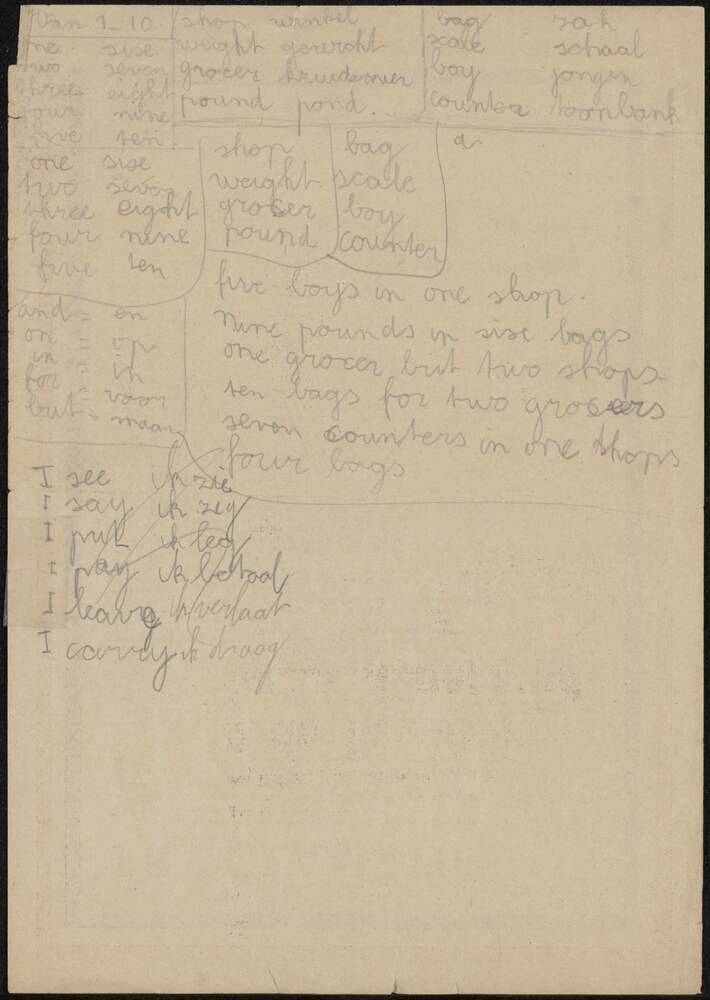 Van 1_10.
one sise
two seven
three eight
four nine
five ten
shop winkel
weight gewicht
grocer kruidenier
pound pond.
bag zak
scale schaal
boy jongen
counter toonbank
one sise
two seven
three eight
four nine
five ten
shop
weight
grocer
pound
bag
scale
boy
counter
a
five boys in one shop.
Nine pounds in sise bags
one grocer but two shops.
ten bags for two grocers
seven counters in one shops
four bags
and = en
on = op
in = in
for = voor
but = maar
I see ik zie
I say ik zeg
I put ik leg
I pay ik betaal
I leave ik verlaat
I carry ik draag